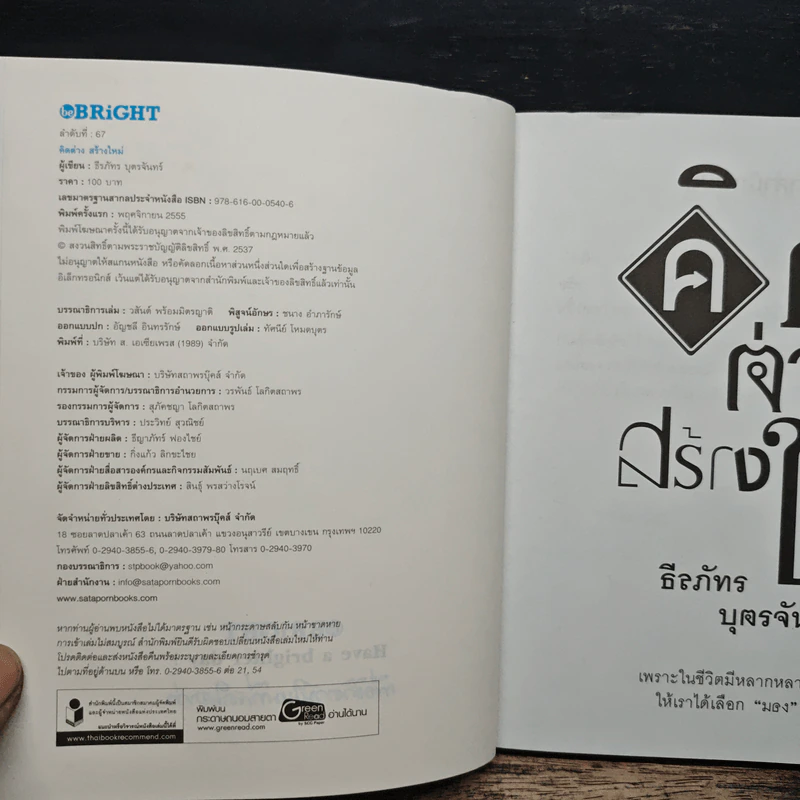 be BRiGHT
ลำดับที่ : 67
คิดต่าง สร้างใหม่
ผู้เขียน : ธีรภัทร บุตรจันทร์
ราคา : 100 บาท
เลขมาตรฐานสากลประจำหนังสือ ISBN : 978-616-00-0540-6
พิมพ์ครั้งแรก : พฤศจิกายน 2555
พิมพ์โฆษณาครั้งนี้ได้รับอนุญาตจากเจ้าของลิขสิทธิ์ตามกฎหมายแล้ว
© สงวนสิทธิ์ตามพระราชบัญญัติลิขสิทธิ์ พ.ศ. 2537
ไม่อนุญาตให้สแกนหนังสือ หรือคัดลอกเนื้อหาส่วนหนึ่งส่วนใดเพื่อสร้างฐานข้อมูล
อิเล็กทรอนิกส์ เว้นแต่ได้รับอนุญาตจากสำนักพิมพ์และเจ้าของลิขสิทธิ์แล้วเท่านั้น
บรรณาธิการเล่ม : วสันต์ พร้อมมิตรญาติ พิสูจน์อักษร : ชนาง อำภารักษ์
ออกแบบปก : อัญชลี อินทรรักษ์ ออกแบบรูปเล่ม : ทัศนีย์ โหมดบุตร
พิมพ์ที่ : บริษัท ส. เอเซียเพรส (1989) จำกัด
เจ้าของ ผู้พิมพ์โฆษณา : บริษัทสถาพรบุ๊คส์ จำกัด
กรรมการผู้จัดการ/บรรณาธิการอำนวยการ : วรพันธ์ โลกิตสถาพร
รองกรรมการผู้จัดการ : สุภัคชญา โลกิตสถาพร
บรรณาธิการบริหาร : ประวิทย์ สุวณิชย์
ผู้จัดการฝ่ายผลิต : ธีญาภัทร์ ฟองไชย์
ผู้จัดการฝ่ายขาย : กิ่งแก้ว ลิกขะไชย
ผู้จัดการฝ่ายสื่อสารองค์กรและกิจกรรมสัมพันธ์ : นฤเบศ สมฤทธิ์
ผู้จัดการฝ่ายลิขสิทธิ์ต่างประเทศ : สินธุ์ พรสว่างโรจน์
จัดจำหน่ายทั่วประเทศโดย : บริษัทสถาพรบุ๊คส์ จำกัด
18 ซอยลาดปลาเค้า 63 ถนนลาดปลาเค้า แขวงอนุสาวรีย์ เขตบางเขน กรุงเทพฯ 10220
โทรศัพท์ 0-2940-3855-6, 0-2940-3979-80 โทรสาร 0-2940-3970
กองบรรณาธิการ : stpbook@yahoo.com
ฝ่ายสำนักงาน : info@satapornbooks.com
www.satapornbooks.com
หากท่านผู้อ่านพบหนังสือไม่ได้มาตรฐาน เช่น หน้ากระดาษสลับกัน หน้าขาดหาย
การเข้าเล่มไม่สมบูรณ์ สำนักพิมพ์ยินดีรับผิดชอบเปลี่ยนหนังสือเล่มใหม่ให้ท่าน
โปรดติดต่อและส่งหนังสือคืนพร้อมระบุรายละเอียดการชำรุด
ไปตามที่อยู่ด้านบน หรือ โทร. 0-2940-3855-6 ต่อ 21, 54
สำนักพิมพ์นี้เป็นสมาชิกสมาคมผู้จัดพิมพ์
และผู้จำหน่ายหนังสือแห่งประเทศไทย
แนะนำหรือวิจารณ์หนังสือเล่มนี้ได้ที่
www.thaibookrecommend.com
พิมพ์บน
กระดาษถนอมสายตา
www.greenread.com
Green Read
by SCG Paper
อ่านได้นาน
คิด
ต่า
สร้าง
ธีรภัทร
บุตรจัน
เพราะในชีวิตมีหลากหลา
ให้เราได้เลือก “มอง”